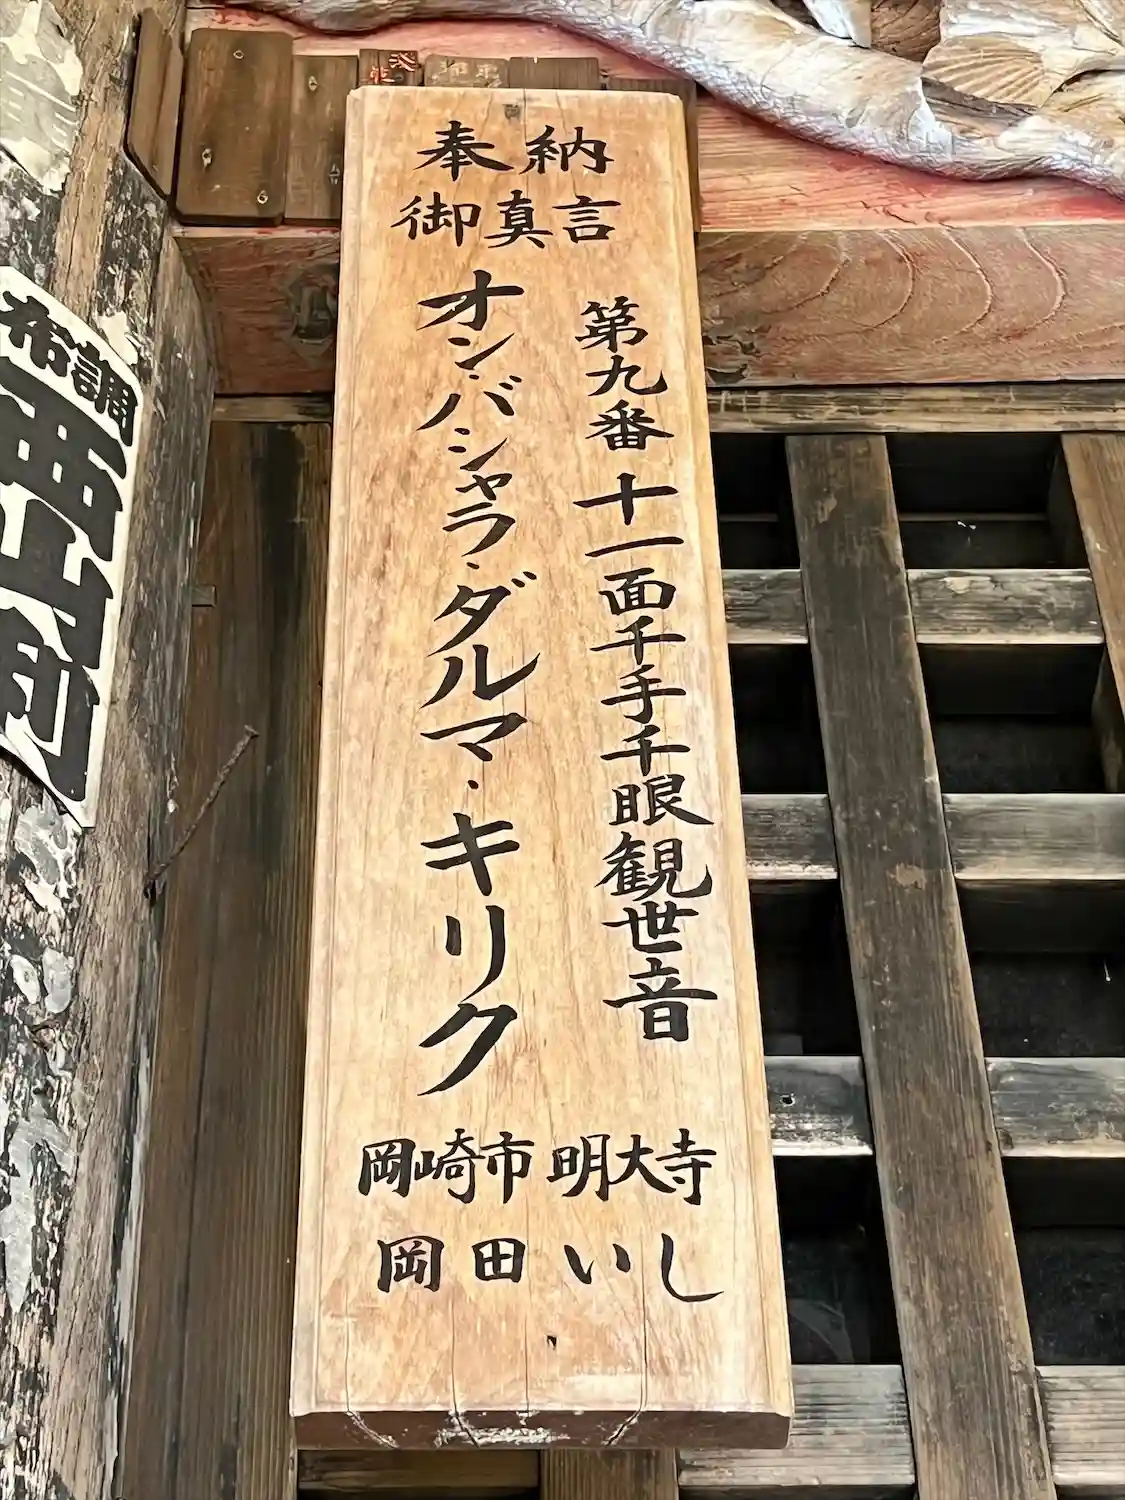 奉納
御真言
第九番 十一面千手千眼観世音
オン・バシャラ・ダルマ・キリク
岡崎市 明大寺
岡田いし
布調
西山